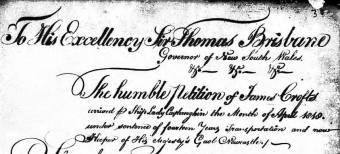 To His Excellency Sir Thomas Brisbane
Governor of New South Wales.
&c— &c— &c—
The humble Petition of James Crofts
arrived p Ship Lady Castlereagh in the Month of April 1818.
under sentence of fourteen Years Transportation and now
Keeper of His Majesty's Gaol Newcastle